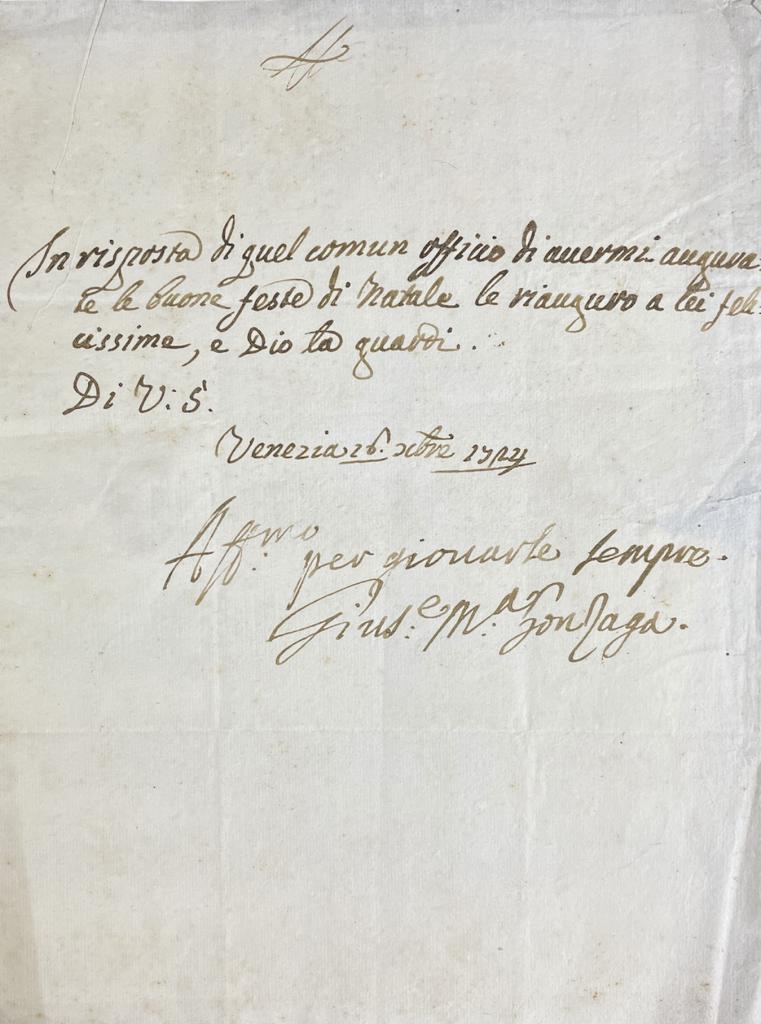 In risposta di quel comun officio di avermi augura-
te le buone feste di Natale le riauguro a lei feli-
cissime, e Dio la guardi.
Di V: S.
Venezia 26. xbre
Aff:mo per giouarle sempre.
Gius:e M.a Gonzaga.